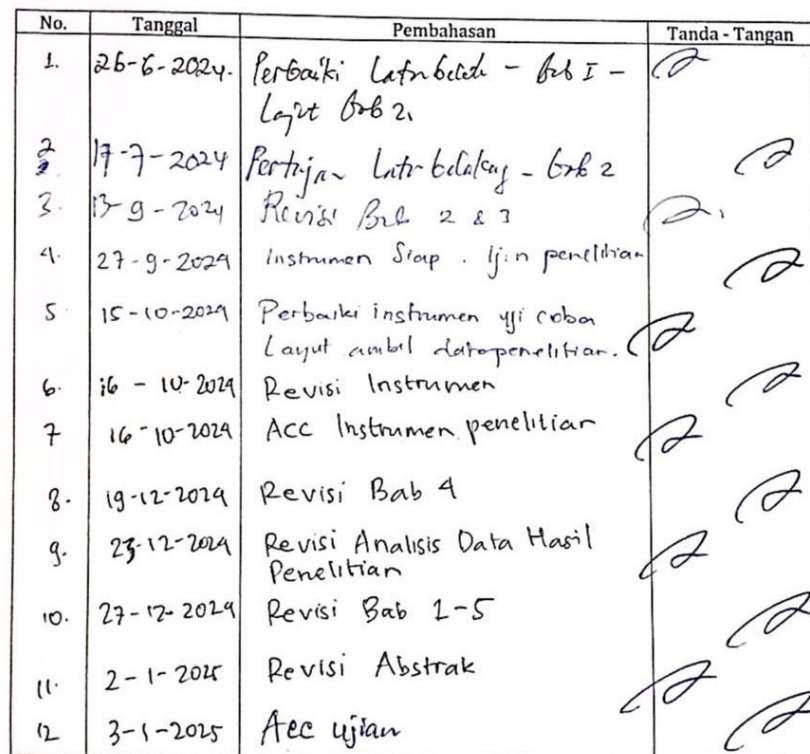 No. Tanggal Pembahasan Tanda - Tangan
1. 26-6-2024. Perbaiki Latar belak - Bab I -
Lanjut Bab 2.
2 17-7-2024 Latar belakang - Bab 2
3. 13-9-2024 Revisi Bab 2 & 3
4. 27-9-2024 Instrumen Siap. Ijin penelitian
5 15-10-2024 Perbaiki instrumen uji coba
Lanjut ambil data penelitian.
6. 16-10-2024 Revisi Instrumen
7 16-10-2024 ACC Instrumen penelitian
8. 19-12-2024 Revisi Bab 4
9. 23-12-2024 Revisi Analisis Data Hasil
Penelitian
10. 27-12-2024 Revisi Bab 1-5
11. 2-1-2025 Revisi Abstrak
12 3-1-2025 Acc ujian